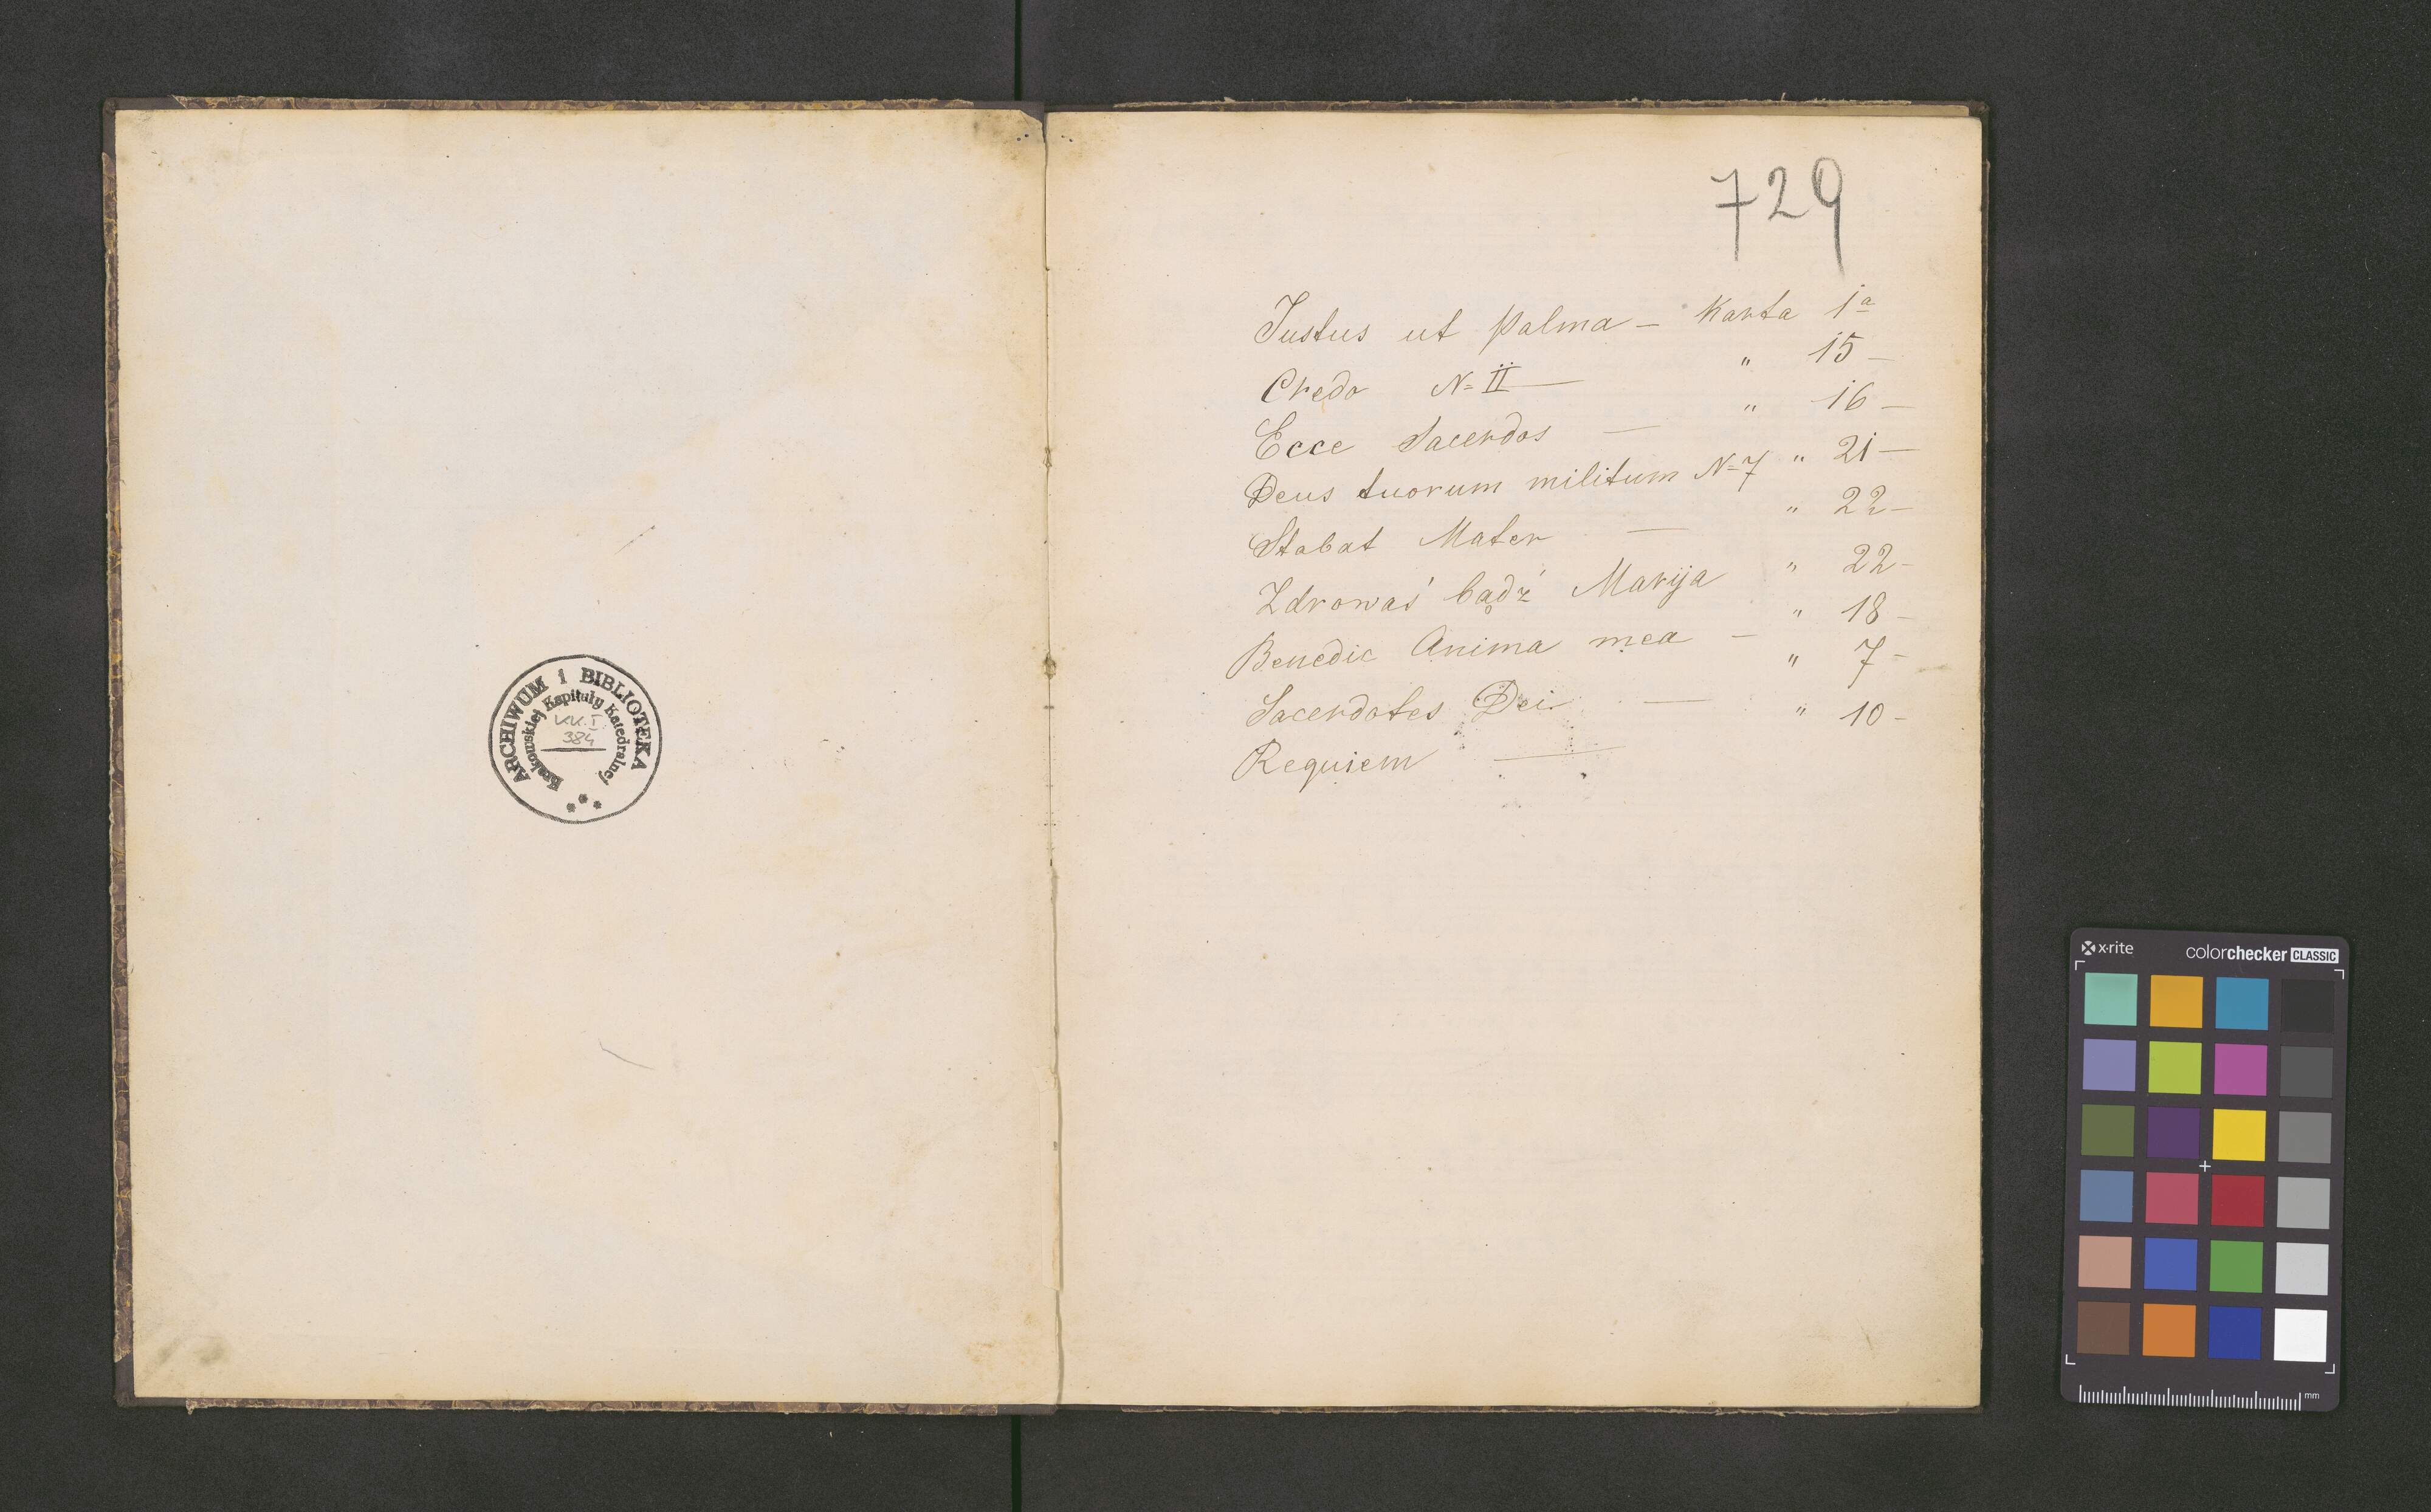 ARCHIWUM i BIBLIOTEKA
Krakowskiej Kapituły Katedralnej
KK.I
384
729
Justus ut palma – Karta 1ª
Credo N= II — " 15 –
Ecce Sacerdos — " 16 –
Deus tuorum militum N=7 " 21 –
Stabat Mater — " 22 –
Zdrowaś bądź Maryja " 22 –
Benedic Anima mea – " 18 –
Sacerdotes Dei — " 7 –
Requiem — " 10 –
x·rite colorchecker CLASSIC
mm